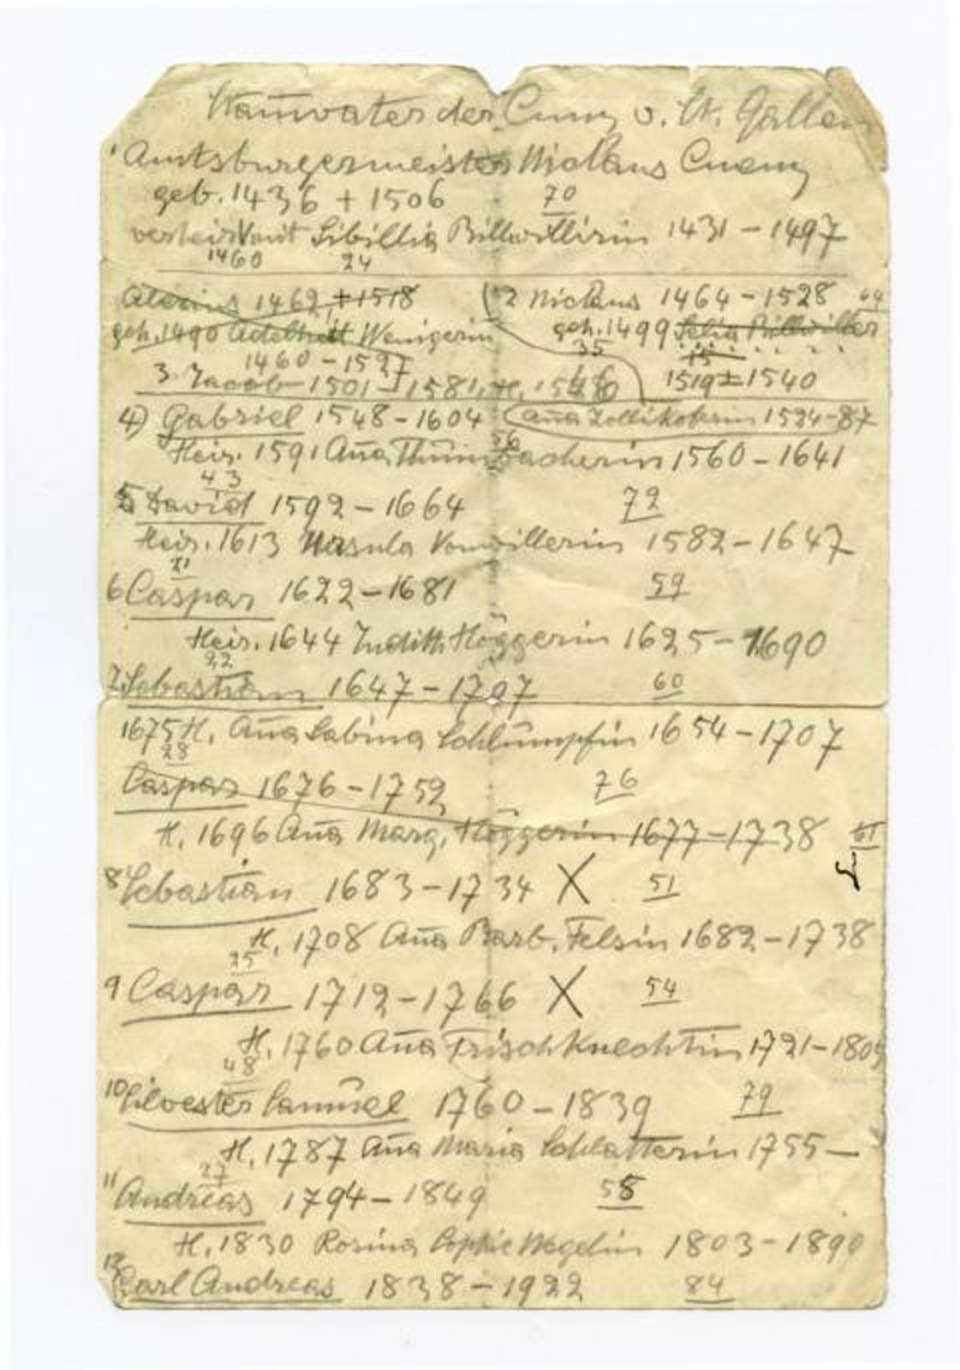 Stam̄vater der Cuny v. St. Gallen
1 Amtsburgermeister Niclaus Cueny
geb. 1436 + 1506 70
verheir. mit Sibillia Billwillerin 1431 – 1497
1460 24
Alexius 1462, +1518 2 Niclaus 1464 – 1528 64
geh. 1490 Adelheit Wenigerin geh. 1499 Billwiller
1460 – 1527 35 15
3. Jacob 1501 – 1581, H. 1546 1519 ± 1540
4) Gabriel 1548 – 1604 Aña Zollikoferin 1524–87
56
Heir. 1591 Aña Thüm̄bacherin 1560 – 1641
43
5 David 1592 – 1664 72
Heir. 1613 Ursula Vonwillerin 1582 – 1647
21
6 Caspar 1622 – 1681 59
Heir. 1644 Judith Höggerin 1625 – 1690
22
7. Sebastian 1647 – 1707 60
1675 H. Aña Sabina Schlumpfin 1654 – 1707
28
Caspar 1676 – 1752 76
H. 1696 Aña Marg. Höggerin 1677 – 1738 61
8 Sebastian 1683 – 1734 X 51
H. 1708 Aña Barb. Felsin 1682 – 1738
25
9 Caspar 1712 – 1766 X 54
H. 1760 Aña Frischknechtin 1721 – 1809
48
10 Silvester Samuel 1760 – 1839 79
H. 1787 Aña Maria Schlatterin 1755 —
27
11 Andreas 1794 – 1849 55
H. 1830 Rosina Sophie Wegelin 1803 – 1890
12 Carl Andreas 1838 – 1922 84